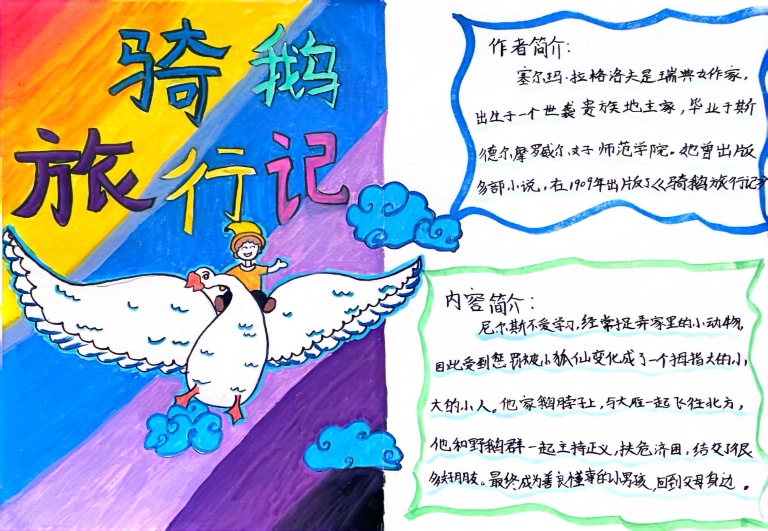 骑鹅
旅行记
作者简介:
塞尔玛·拉格洛夫是瑞典女作家,
出生于一个世袭贵族地主家,毕业于斯
德尔摩罗威尔女子师范学院。她曾出版
多部小说,在1909年出版了《骑鹅旅行记》
内容简介:
尼尔斯不爱学习,经常捉弄家里的小动物,
因此受到惩罚被小狐仙变化成了一个拇指大的小,
大的小人。他家鹅脖子上,与大雁一起飞往北方,
他和野鹅群一起主持正义,扶危济困,结交了很
多好朋友。最终成为善良懂事的小男孩,回到父母身边。